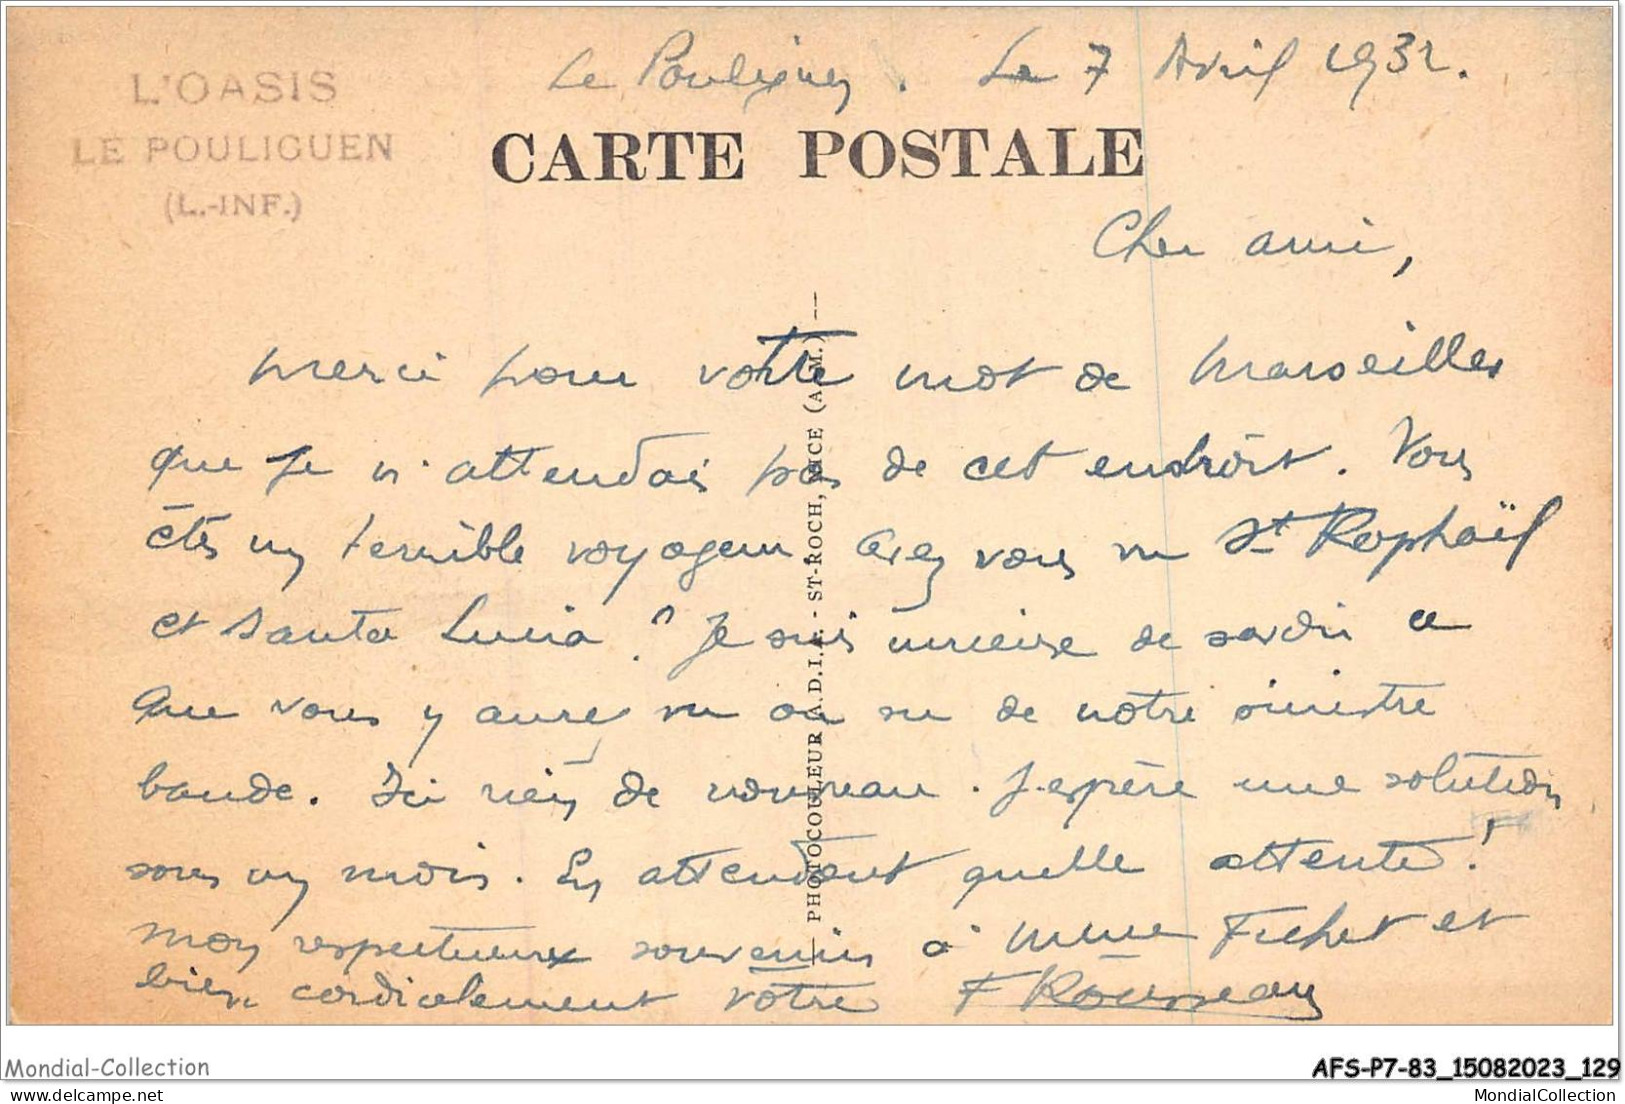 L'OASIS
LE POULIGUEN
(L.-INF.)
Le Pouliguen. Le 7 Avril 1932.
CARTE POSTALE
Cher ami,
merci pour votre mot de Marseilles
que je n'attendais pas de cet endroit. Vous
êtes un terrible voyageur. Avez vous vu St Raphaël
et Santa Lucia ? Je suis curieuse de savoir ce
que vous y aurez vu ou su de notre sinistre
bande. Ici rien de nouveau. J'espère une solution
sous un mois. En attendant quelle attente !
mon respectueux souvenir à Mme Fichet et
bien cordialement votre F Rousseau
PHOTOCOULEUR A.D.I.A. - ST-ROCH, NICE (A.M.)
Mondial-Collection
AFS-P7-83_15082023_129
www.delcampe.net
MondialCollection